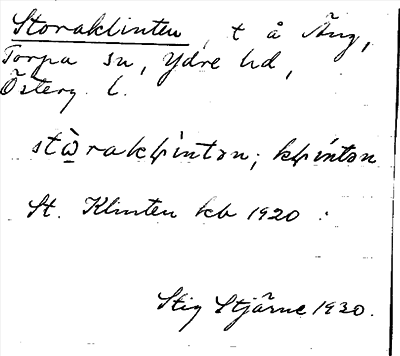 Storaklinten, t å Äng,
Torpa sn, Ydre hd,
Österg. l.
stὼ̣rakḷìntən; kḷíntən
St. Klinten kb 1920.
Stig Stjärne 1930.